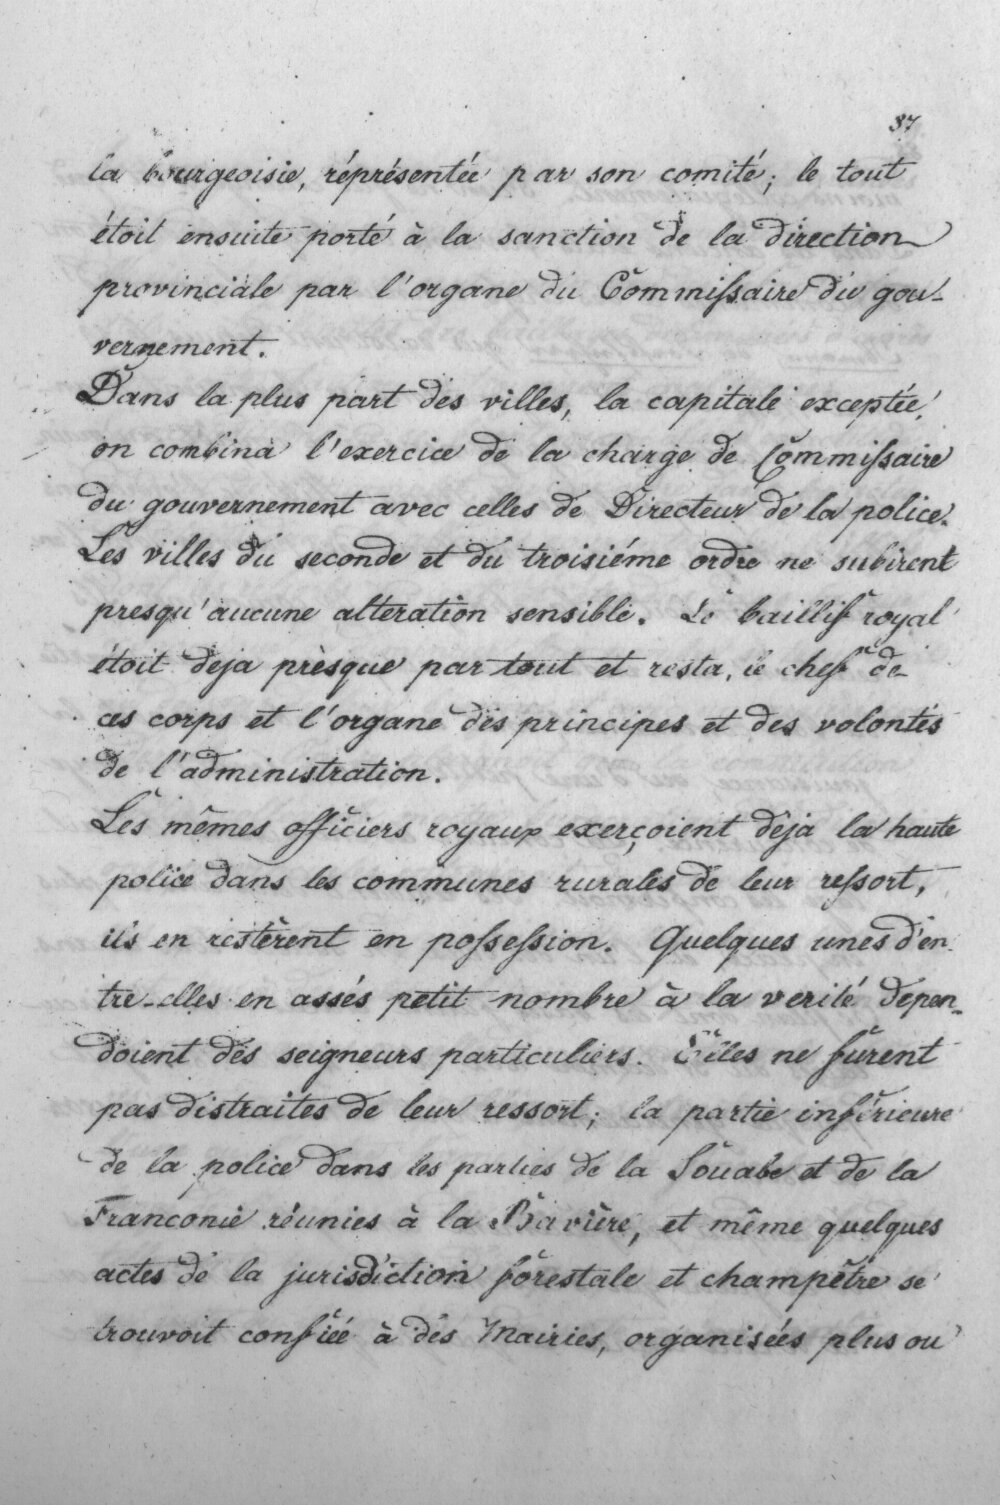 37
la bourgeoisie, réprésentée par son comité; le tout
étoit ensuite porté à la sanction de la direction
provinciale par l'organe du Commissaire du gou-
vernement.
Dans la plus part des villes, la capitale exceptée,
on combina l'exercice de la charge de Commissaire
du gouvernement avec celles de Directeur de la police.
Les villes du seconde et du troisiéme ordre ne subirent
presqu'aucune alteration sensible. Le baillif royal
étoit deja prèsque par tout et resta, le chef de
ces corps et l'organe des principes et des volontés
de l'administration.
Les mêmes officiers royaux exerçoient deja la haute
police dans les communes rurales de leur ressort,
ils en restèrent en possession. Quelques unes d'en-
tre-elles en assés petit nombre à la verité depen-
doient des seigneurs particuliers. Elles ne furent
pas distraites de leur ressort; la partie inférieure
de la police dans les parties de la Souabe et de la
Franconie réunies à la Bavière, et même quelques
actes de la jurisdiction forestale et champêtre se
trouvoit confiée à des Mairies, organisées plus ou